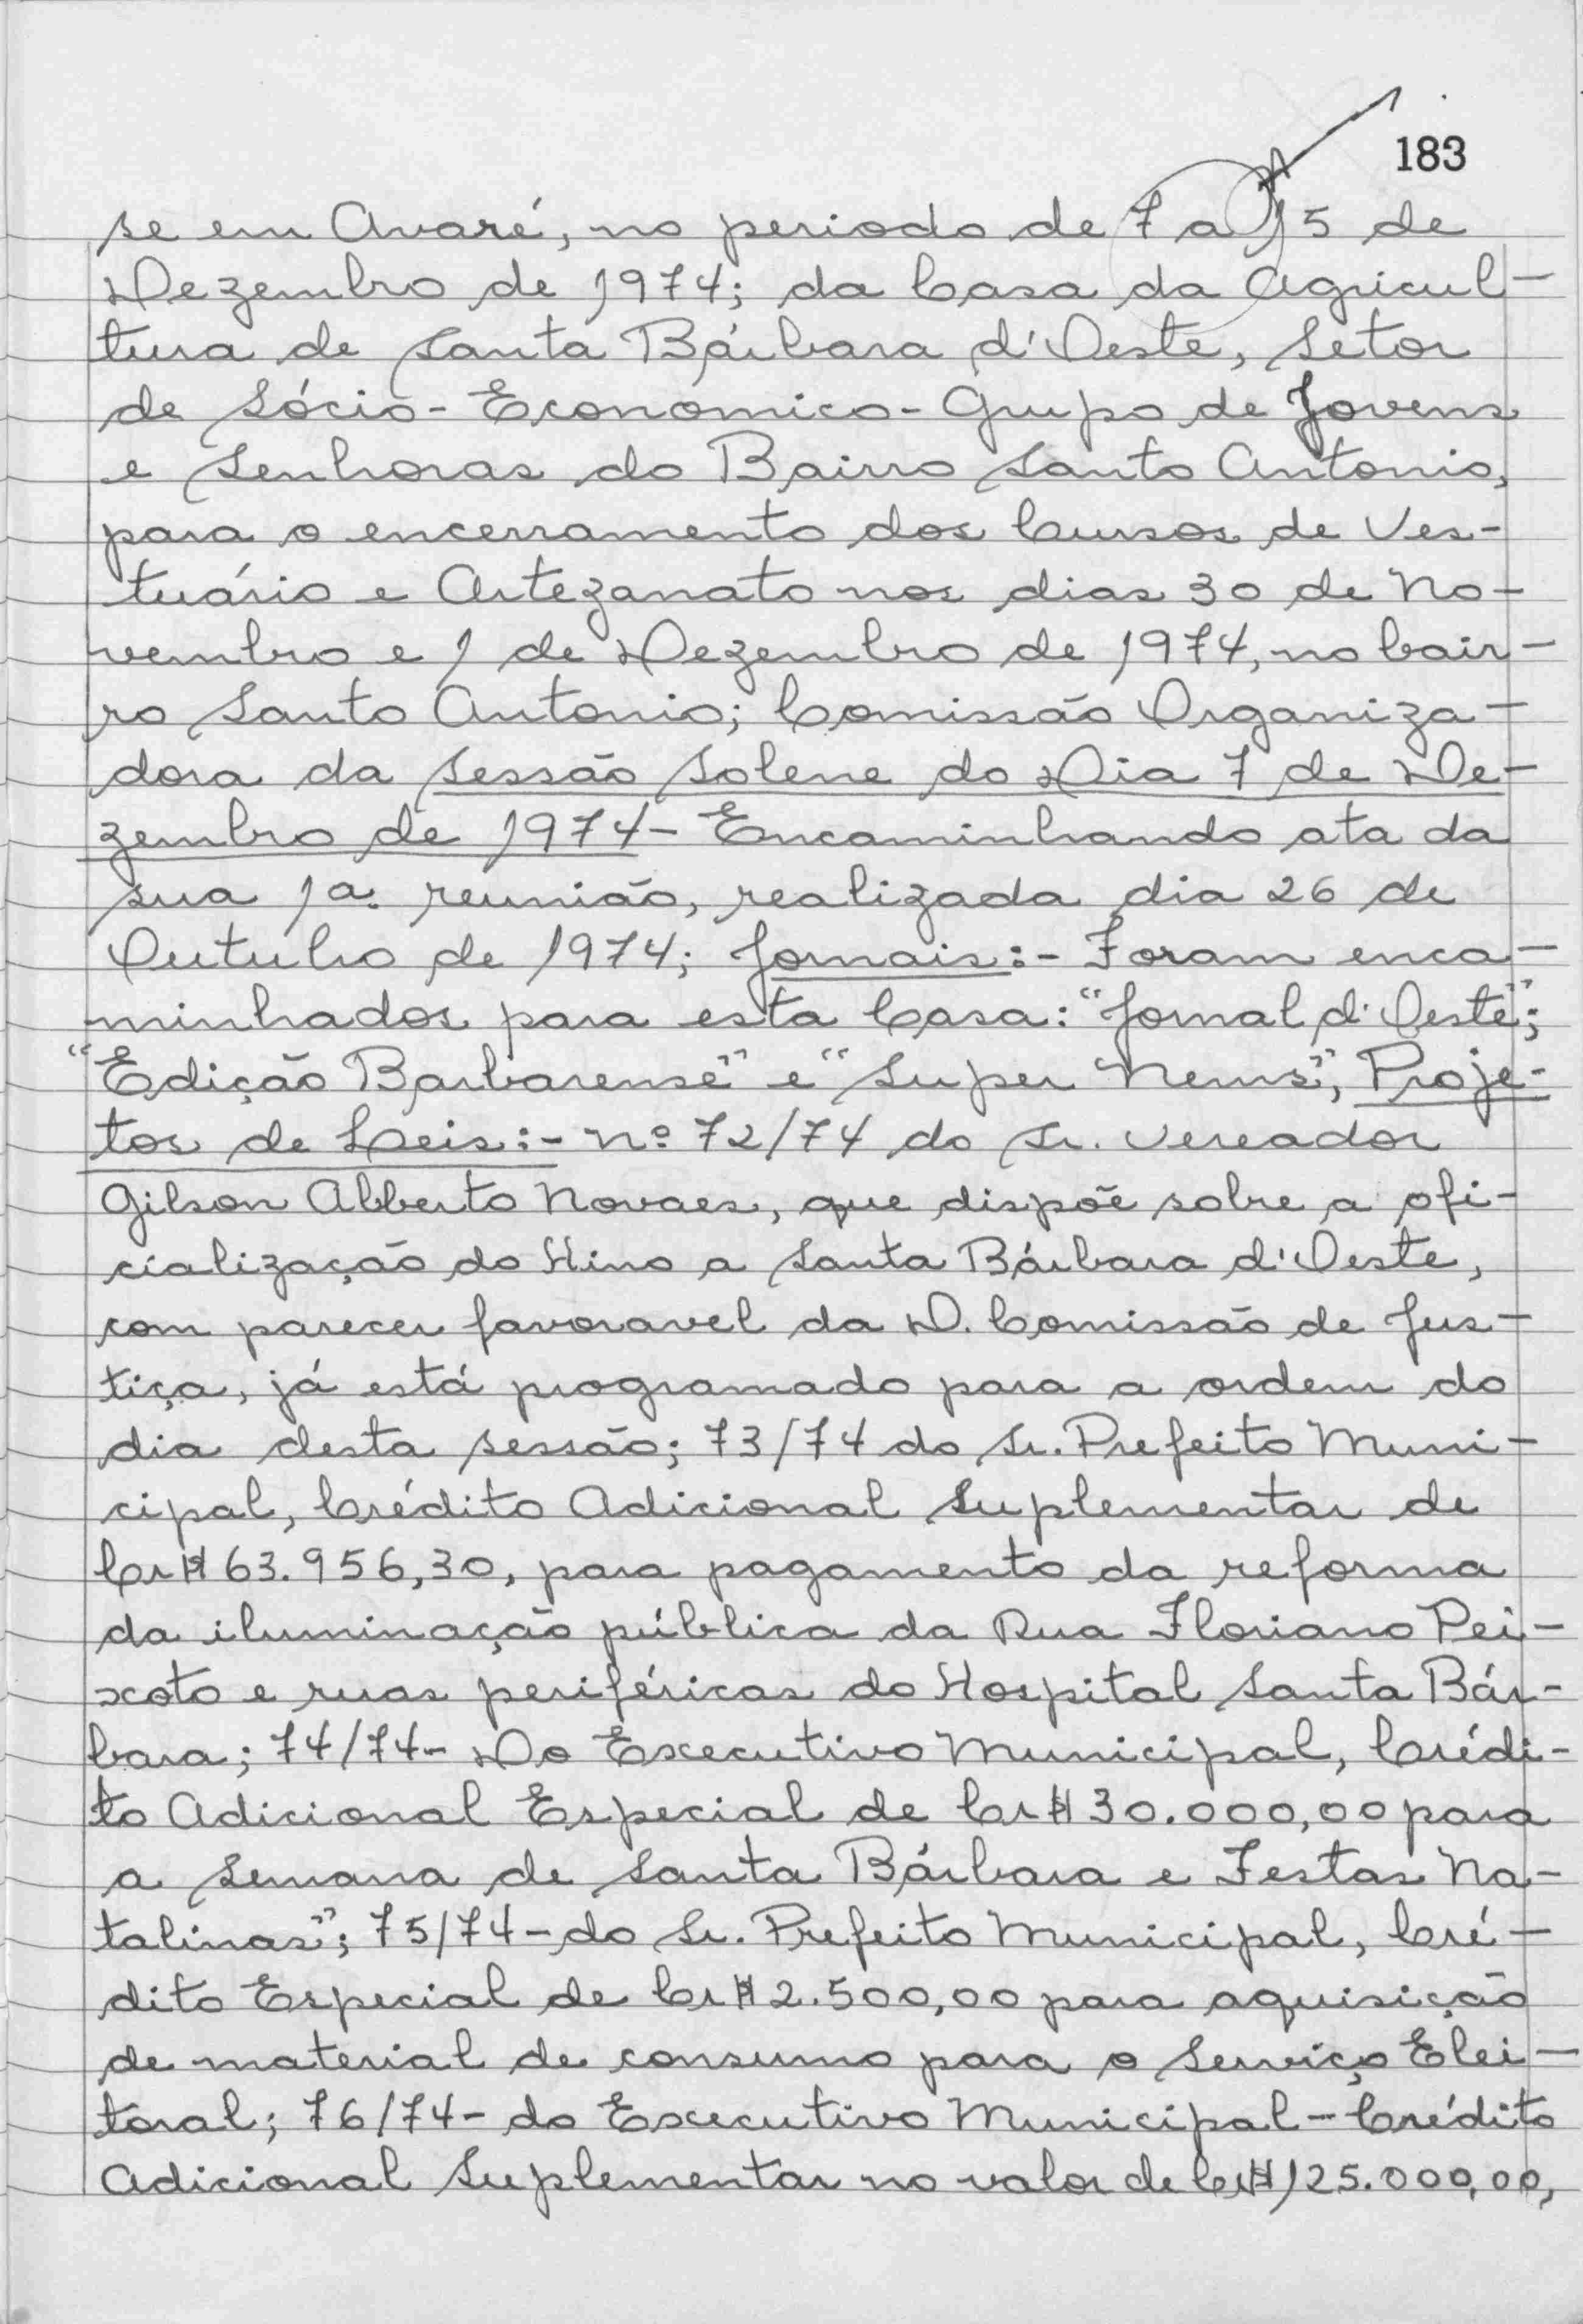 183
se em Avaré, no periodo de 7 a 15 de
Dezembro de 1974; da Casa da Agricul-
tura de Santa Bárbara d'Oeste, Setor
de Sócio-Economico-Grupo de Jovens
e Senhoras do Bairro Santo Antonio,
para o encerramento dos Cursos de Ves-
tuário e Artezanato nos dias 30 de No-
vembro e 1 de Dezembro de 1974, no bair-
ro Santo Antonio; Comissão Organiza-
dora da Sessão Solene do Dia 7 de De-
zembro de 1974- Encaminhando ata da
sua 1a. reunião, realizada dia 26 de
Outubro de 1974; Jornais:- Foram enca-
minhados para esta Casa: "Jornal d'Oeste";
"Edição Barbarense" e "Super News", Proje-
tos de Leis:- nº 72/74 do Sr. Vereador
Gilson Alberto Novaes, que dispõe sobre a ofi-
cialização do Hino a Santa Bárbara d'Oeste,
com parecer favoravel da D. Comissão de Jus-
tiça, já está programado para a ordem do
dia desta sessão; 73/74 do Sr. Prefeito Muni-
cipal, Crédito Adicional Suplementar de
Cr$ 63.956,30, para pagamento da reforma
da iluminação pública da Rua Floriano Pei-
xoto e ruas periféricas do Hospital Santa Bár-
bara; 74/74- Do Executivo Municipal, Crédi-
to Adicional Especial de Cr$ 30.000,00 para
a Semana de Santa Bárbara e Festas Na-
talinas"; 75/74- do Sr. Prefeito Municipal, Cré-
dito Especial de Cr$ 2.500,00 para aquisição
de material de consumo para o Serviço Elei-
toral; 76/74- do Executivo Municipal - Crédito
Adicional Suplementar no valor de Cr$ 125.000,00,